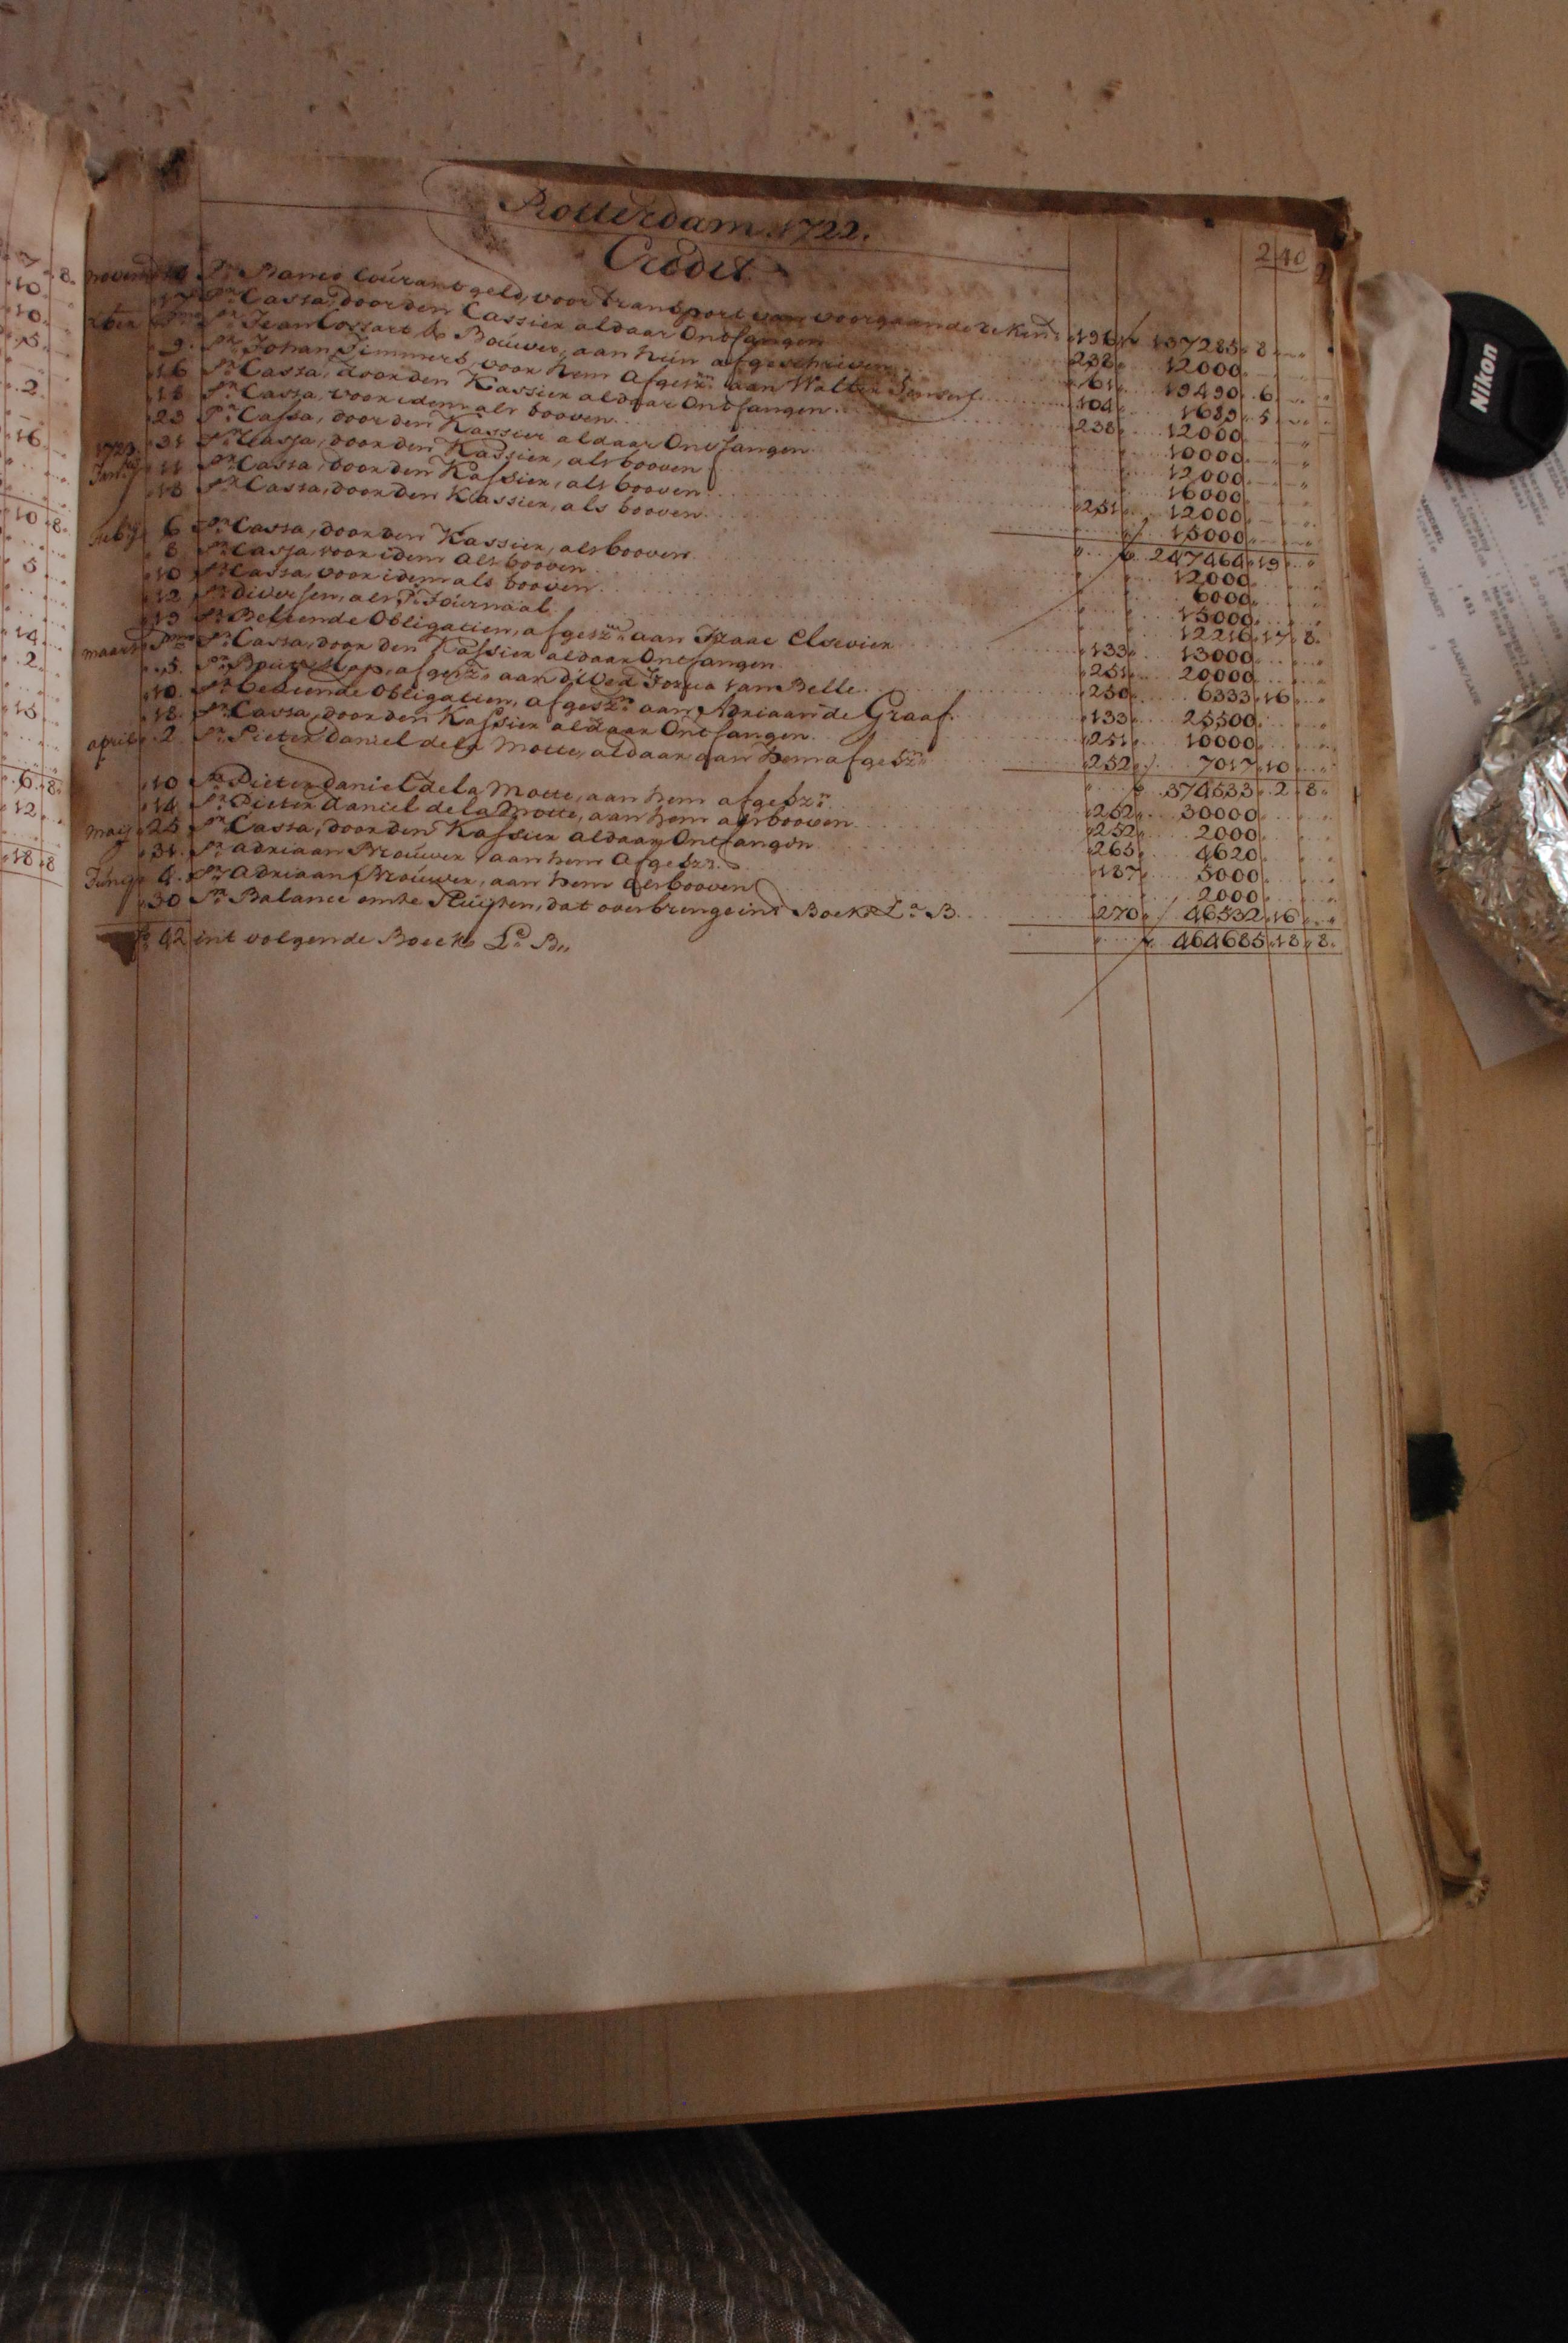 Rotterdam 1722.
240
Credit
novemb 10 Pr Banco Courant geld, voor transport van voorgaande Reken: 196 137285 8
17 Pr Cassa, door den Cassier aldaar Ontfangen 238 12000
xber Pmo Pr Jean Cossart & Bouwer, aan hun afgeschriven 61 19490 6
9 Pr Johan Timmers, voor hem afgeszn aan Walter Senserf 104 1689 5
16 Pr Cassa, door den Kassier aldaar Ontfangen 238 12000
18 Pr Cassa, voor idem als booven 10000
23 Pr Cassa, door den Kassier aldaar Ontfangen 12000
31 Pr Cassa, door den Kassier, als booven 16000
1723 Jany 11 Pr Cassa, door den Kassier, als booven 251 12000
18 Pr Cassa, door den Kassier, als booven 15000
247464 19
Feby 6 Pr Cassa, door den Kassier, als booven 12000
8 Pr Cassa, voor idem als booven 6000
10 Pr Cassa, voor idem als booven 15000
12 Pr diversen, als Pr Journaal 12216 17 8
13 Pr Beleende Obligatien, afgeszn aan Isaac Elsevier 133 13000
maart Pmo Pr Cassa, door den Kassier aldaar Ontfangen 251 20000
5 afgeszn aan Josua van Belle 250 6333 16
10 Pr beleende Obligatien, afgeszn aan Adriaan de Graaf 133 25500
18 Pr Cassa, door den Kassier aldaar Ontfangen 251 10000
april 2 Pr Pieter Daniel de la Motte, aldaar aan hem afgeszn 252 7017 10
374533 2 8
10 Pr Pieter Daniel de la Motte, aan hem afgeszn 252 30000
14 Pr Pieter Daniel de la Motte, aan hem als booven 252 2000
may 25 Pr Cassa, door den Kassier aldaar Ontfangen 265 4620
31 Pr Adriaan Brouwer, aan hem Afgeszn 187 5000
Juny 4 Pr Adriaan Brouwer, aan hem als booven 2000
30 Pr Balance omte Sluyten, dat overbrenge int Boek La B 270 46532 16
42 int volgende Boeck La B 464685 18 8
Nikon